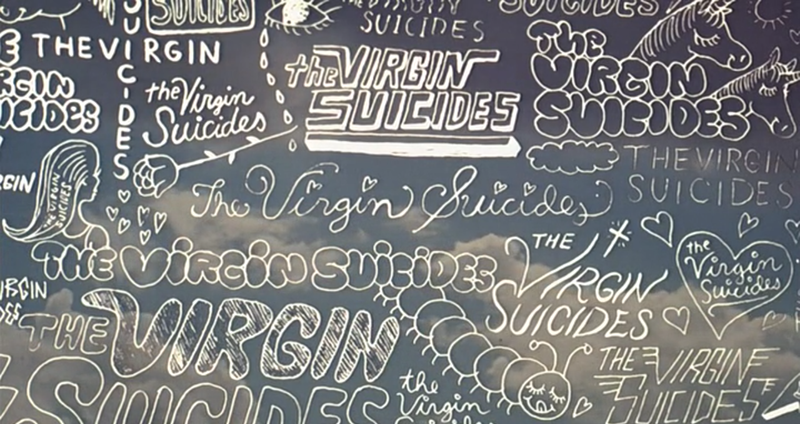 SUICIDES
SUICIDES
SUICIDES
SUICIDES
THE VIRGIN
the VIRGIN
SUICIDES
The
VIRGIN
SUICIDES
the Virgin
Suicides
VIRGIN
SUICIDES
THE VIRGIN
SUICIDES
RGIN
CIDES
The Virgin Suicides
GIN
THE VIRGIN
SUICIDES
THE
VIRGIN
SUICIDES
the
Virgin
Suicides
THE VIRGIN SUICIDES
IRGIN
THE VIRGIN
SUICIDES
THE VIRGIN
SUICIDES
the
Virgin